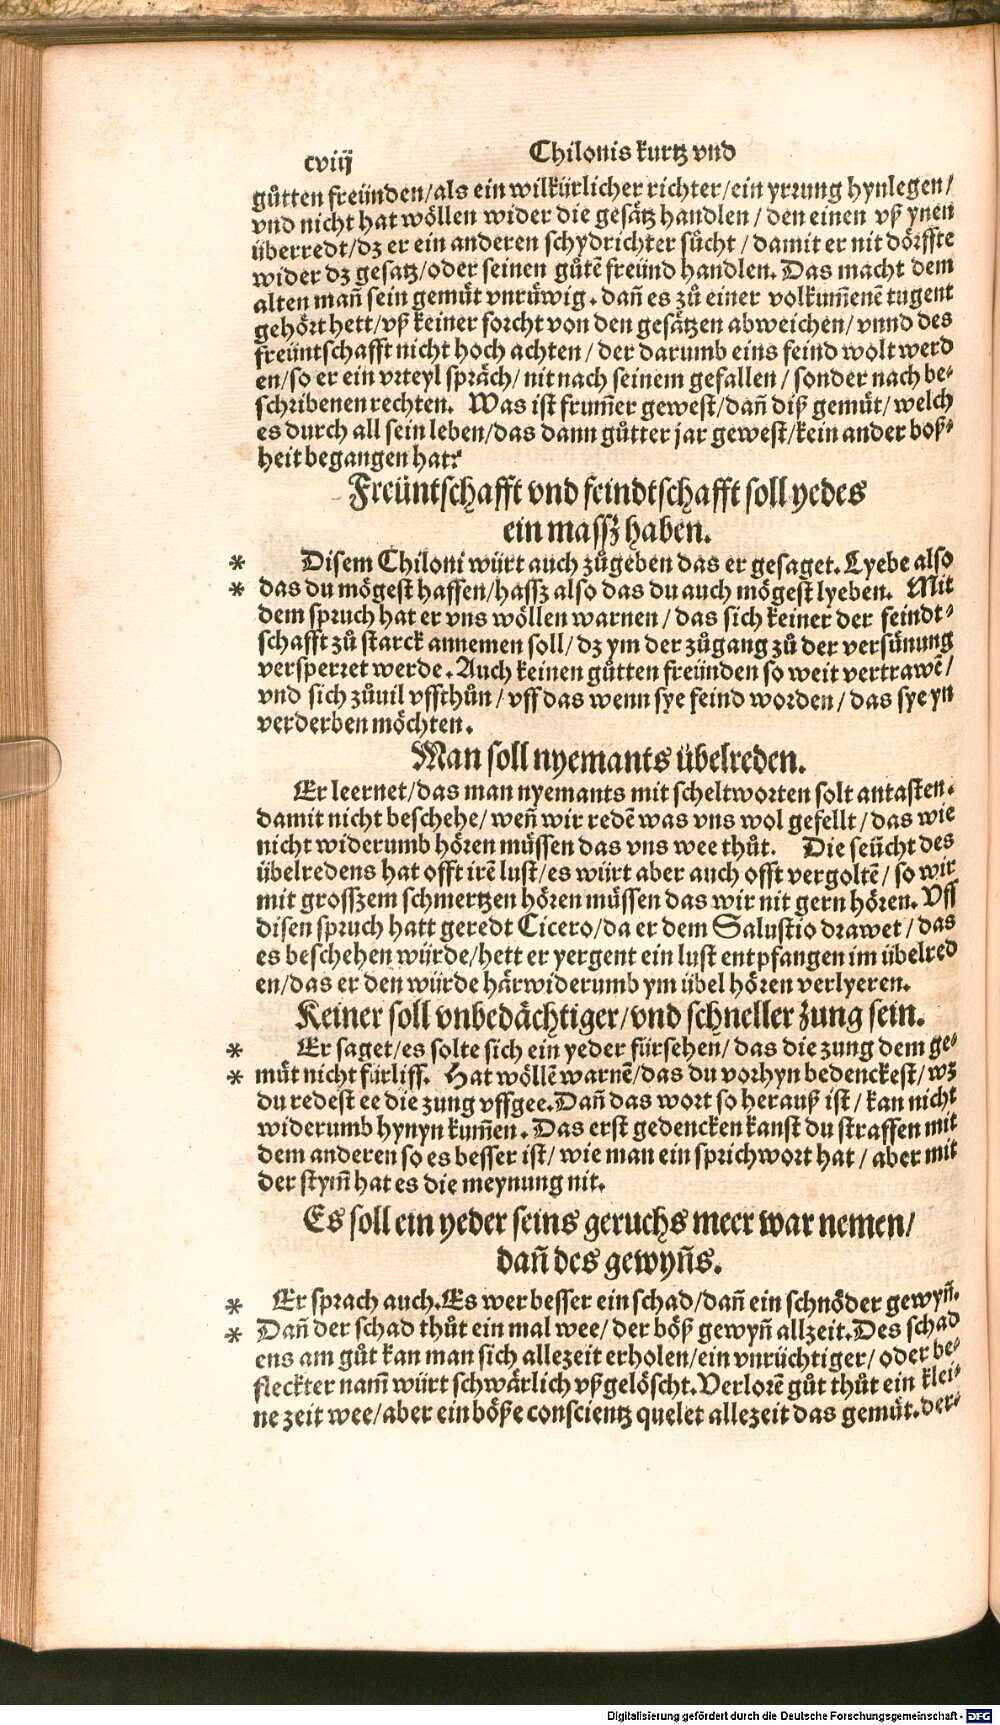 cviij
Chilonis kurtz vnd
gůtten freünden/als ein wilkürlicher richter/ein yrrung hynlegen/
vnd nicht hat wöllen wider die gesätz handlen/den einen vß ynen
überredt/dz er ein anderen schydrichter sůcht/damit er nit dörffte
wider dz gesatz/oder seinen gůtē freünd handlen. Das macht dem
alten mañ sein gemüt vnrüwig. dañ es zů einer volkum̄enē tugent
gehört hett/vß keiner forcht von den gesätzen abweichen/vnnd des
freüntschafft nicht hoch achten/der darumb eins feind wolt werd
en/so er ein vrteyl spräch/nit nach seinem gefallen/sonder nach be⸗
schribenen rechten. Was ist frum̄er gewest/dañ diß gemüt/welch
es durch all sein leben/das dann gůtter jar gewest/kein ander boß⸗
heit begangen hat?
Freüntschafft vnd feindtschafft soll yedes
ein massz haben.
* Disem Chiloni würt auch zůgeben das er gesaget. Lyebe also
* das du mögest hassen/hassz also das du auch mögest lyeben. Mit
dem spruch hat er vns wöllen warnen/das sich keiner der feindt⸗
schafft zů starck annemen soll/dz ym der zůgang zů der versünung
versperret werde. Auch keinen gůtten freünden so weit vertrawē/
vnd sich zůuil vffthůn/vff das wenn sye feind worden/das sye yn
verderben möchten.
Man soll nyemants übelreden.
Er leernet/das man nyemants mit scheltworten solt antasten.
damit nicht beschehe/weñ wir redē was vns wol gefellt/das wie
nicht widerumb hören müssen das vns wee thůt. Die seücht des
übelredens hat offt irē lust/es würt aber auch offt vergoltē/so wir
mit grosszem schmertzen hören müssen das wir nit gern hören. Vff
disen spruch hatt geredt Cicero/da er dem Salustio drawet/das
es beschehen würde/hett er yergent ein lust entpfangen im übelred
en/das er den würde härwiderumb ym übel hören verlyeren.
Keiner soll vnbedächtiger/vnd schneller zung sein.
* Er saget/es solte sich ein yeder fürsehen/das die zung dem ge⸗
* müt nicht fürliff. Hat wöllē warnē/das du vorhyn bedenckest/wz
du redest ee die zung vffgee. Dañ das wort so herauß ist/kan nicht
widerumb hynyn kum̄en. Das erst gedencken kanst du straffen mit
dem anderen so es besser ist/wie man ein sprichwort hat/aber mit
der stym̄ hat es die meynung nit.
Es soll ein yeder seins geruchs meer war nemen/
dañ des gewyñs.
* Er sprach auch. Es wer besser ein schad/dañ ein schnöder gewyñ.
* Dañ der schad thůt ein mal wee/der böß gewyñ allzeit. Des schad
ens am gůt kan man sich allezeit erholen/ein vnrüchtiger/oder be⸗
fleckter nam̄ würt schwärlich vßgelöscht. Verlorē gůt thůt ein klei⸗
ne zeit wee/aber ein böße conscientz quelet allezeit das gemüt. der⸗
Digitalisierung gefördert durch die Deutsche Forschungsgemeinschaft - DFG